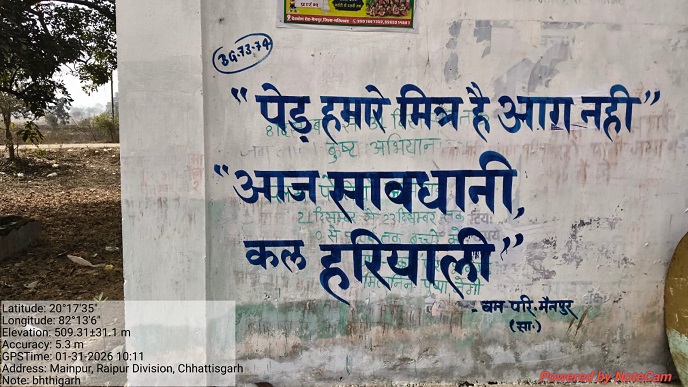 BG.73-74
"पेड़ हमारे मित्र है आग नही"
"आज सावधानी,
कल हरियाली"
- वन परि. मैनपुर
(सा.)
Latitude: 20°17'35"
Longitude: 82°13'6"
Elevation: 509.31±31.1 m
Accuracy: 5.3 m
GPSTime: 01-31-2026 10:11
Address: Mainpur, Raipur Division, Chhattisgarh
Note: bhthigarh
Powered by NoteCam